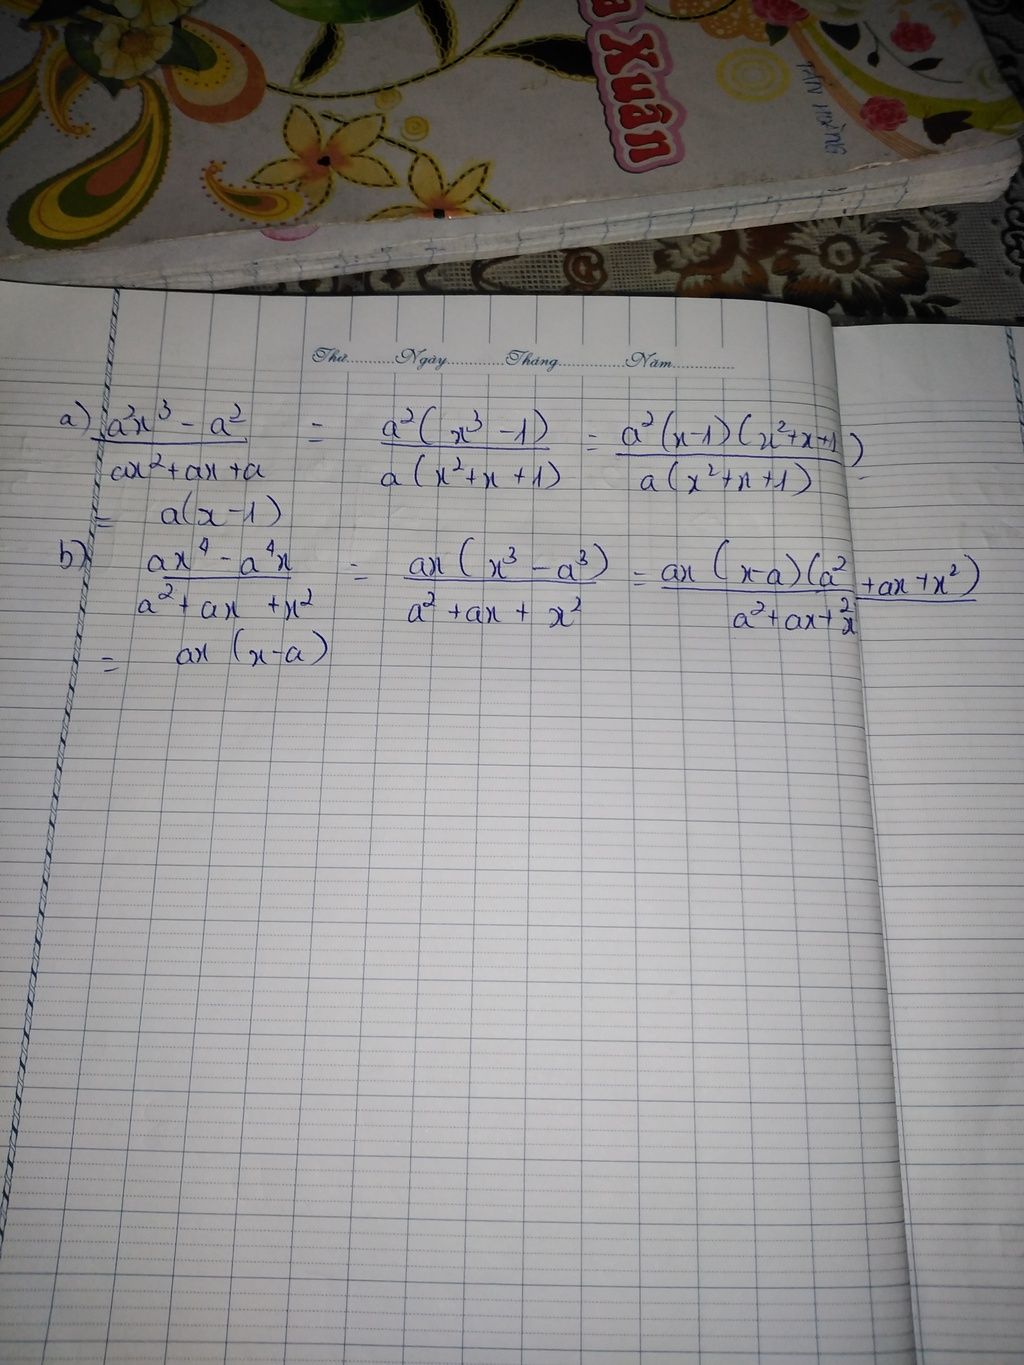 a Xuân
TÂN HƯNG
Thứ..........Ngày.............Tháng..............Năm..............
a) a²x³ - a² / ax² + ax + a = a²(x³ - 1) / a(x² + x + 1) = a²(x-1)(x²+x+1) / a(x²+x+1)
= a(x-1)
b) ax⁴ - a⁴x / a² + ax + x² = ax(x³ - a³) / a² + ax + x² = ax(x-a)(a² + ax + x²) / a² + ax + x²
= ax(x-a)